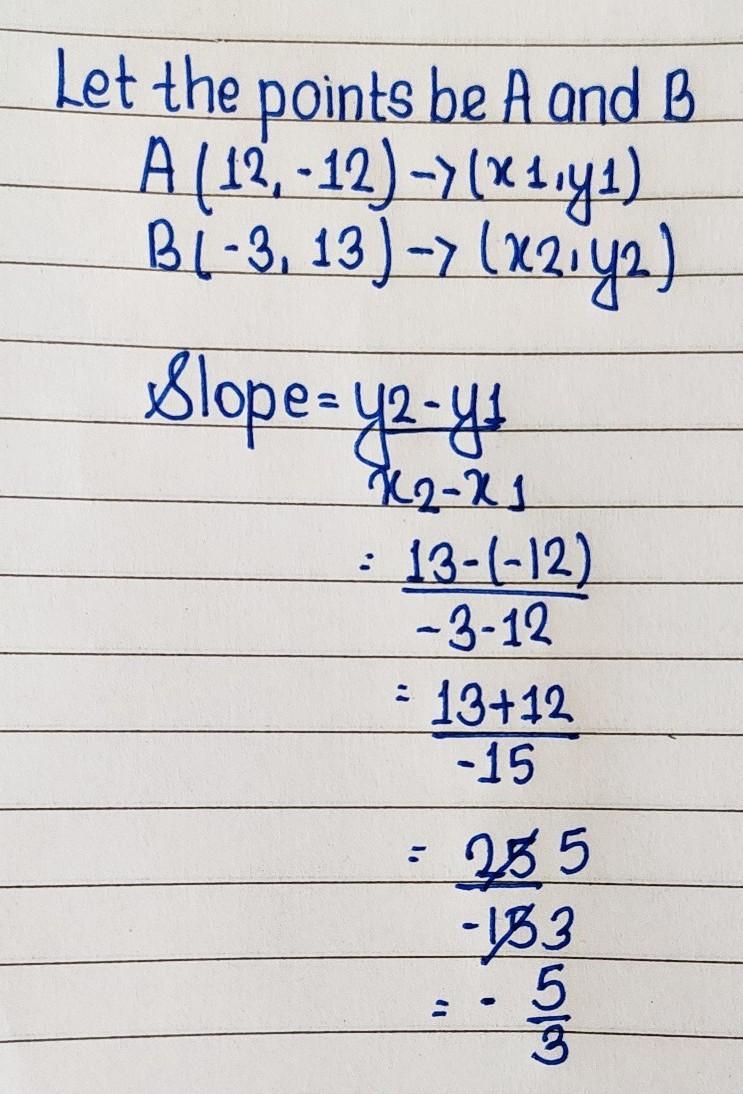 Let the points be A and B
A(12, -12) -> (x1,y1)
B(-3, 13) -> (x2,y2)
Slope = y2-y1
x2-x1
= 13-(-12)
-3-12
= 13+12
-15
= 25 5
-15 3
= - 5
3